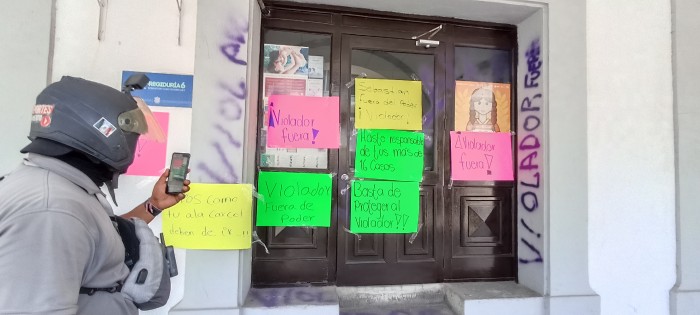 REGIDURÍA 6
VIOLADOR
¡Violador
fuera!
fuera del Poder
¡Violador!
Hazte responsable
de tus más de
16 Casos
Violador
Fuera de
Poder
Basta de
Proteger al
Violador!!
¡Violador
fuera!
como
tu a la carcel
deben de ir
VIOLADOR FUERA
VIOL